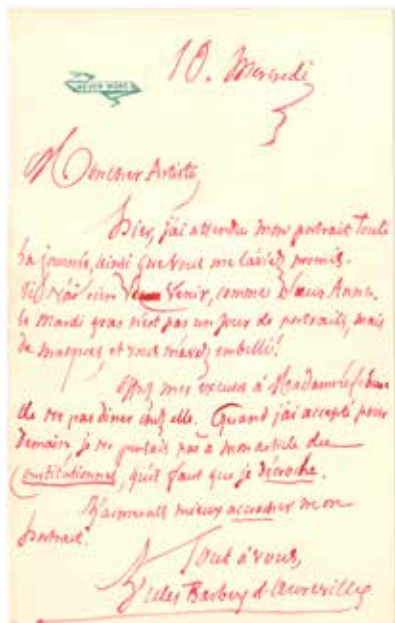 NEVER MORE
10. Mercredi
Mon cher Artiste,
Hier, j'ai attendu mon portrait toute
la journée, ainsi que vous me l'aviez promis.
venir, comme Sœur Anne.
Le Mardi gras n'est pas un jour de portraits, mais
de masques, et vous m'avez embelli!
mes excuses à Madame
de ne pas diner chez elle. Quand j'ai accepté pour
Demain, je ne pensais pas à mon article du
Constitutionnel, qu'il faut que je décroche.
J'aimerais mieux accrocher mon
portrait.
Tout à vous,
Jules Barbey d'Aurevilly